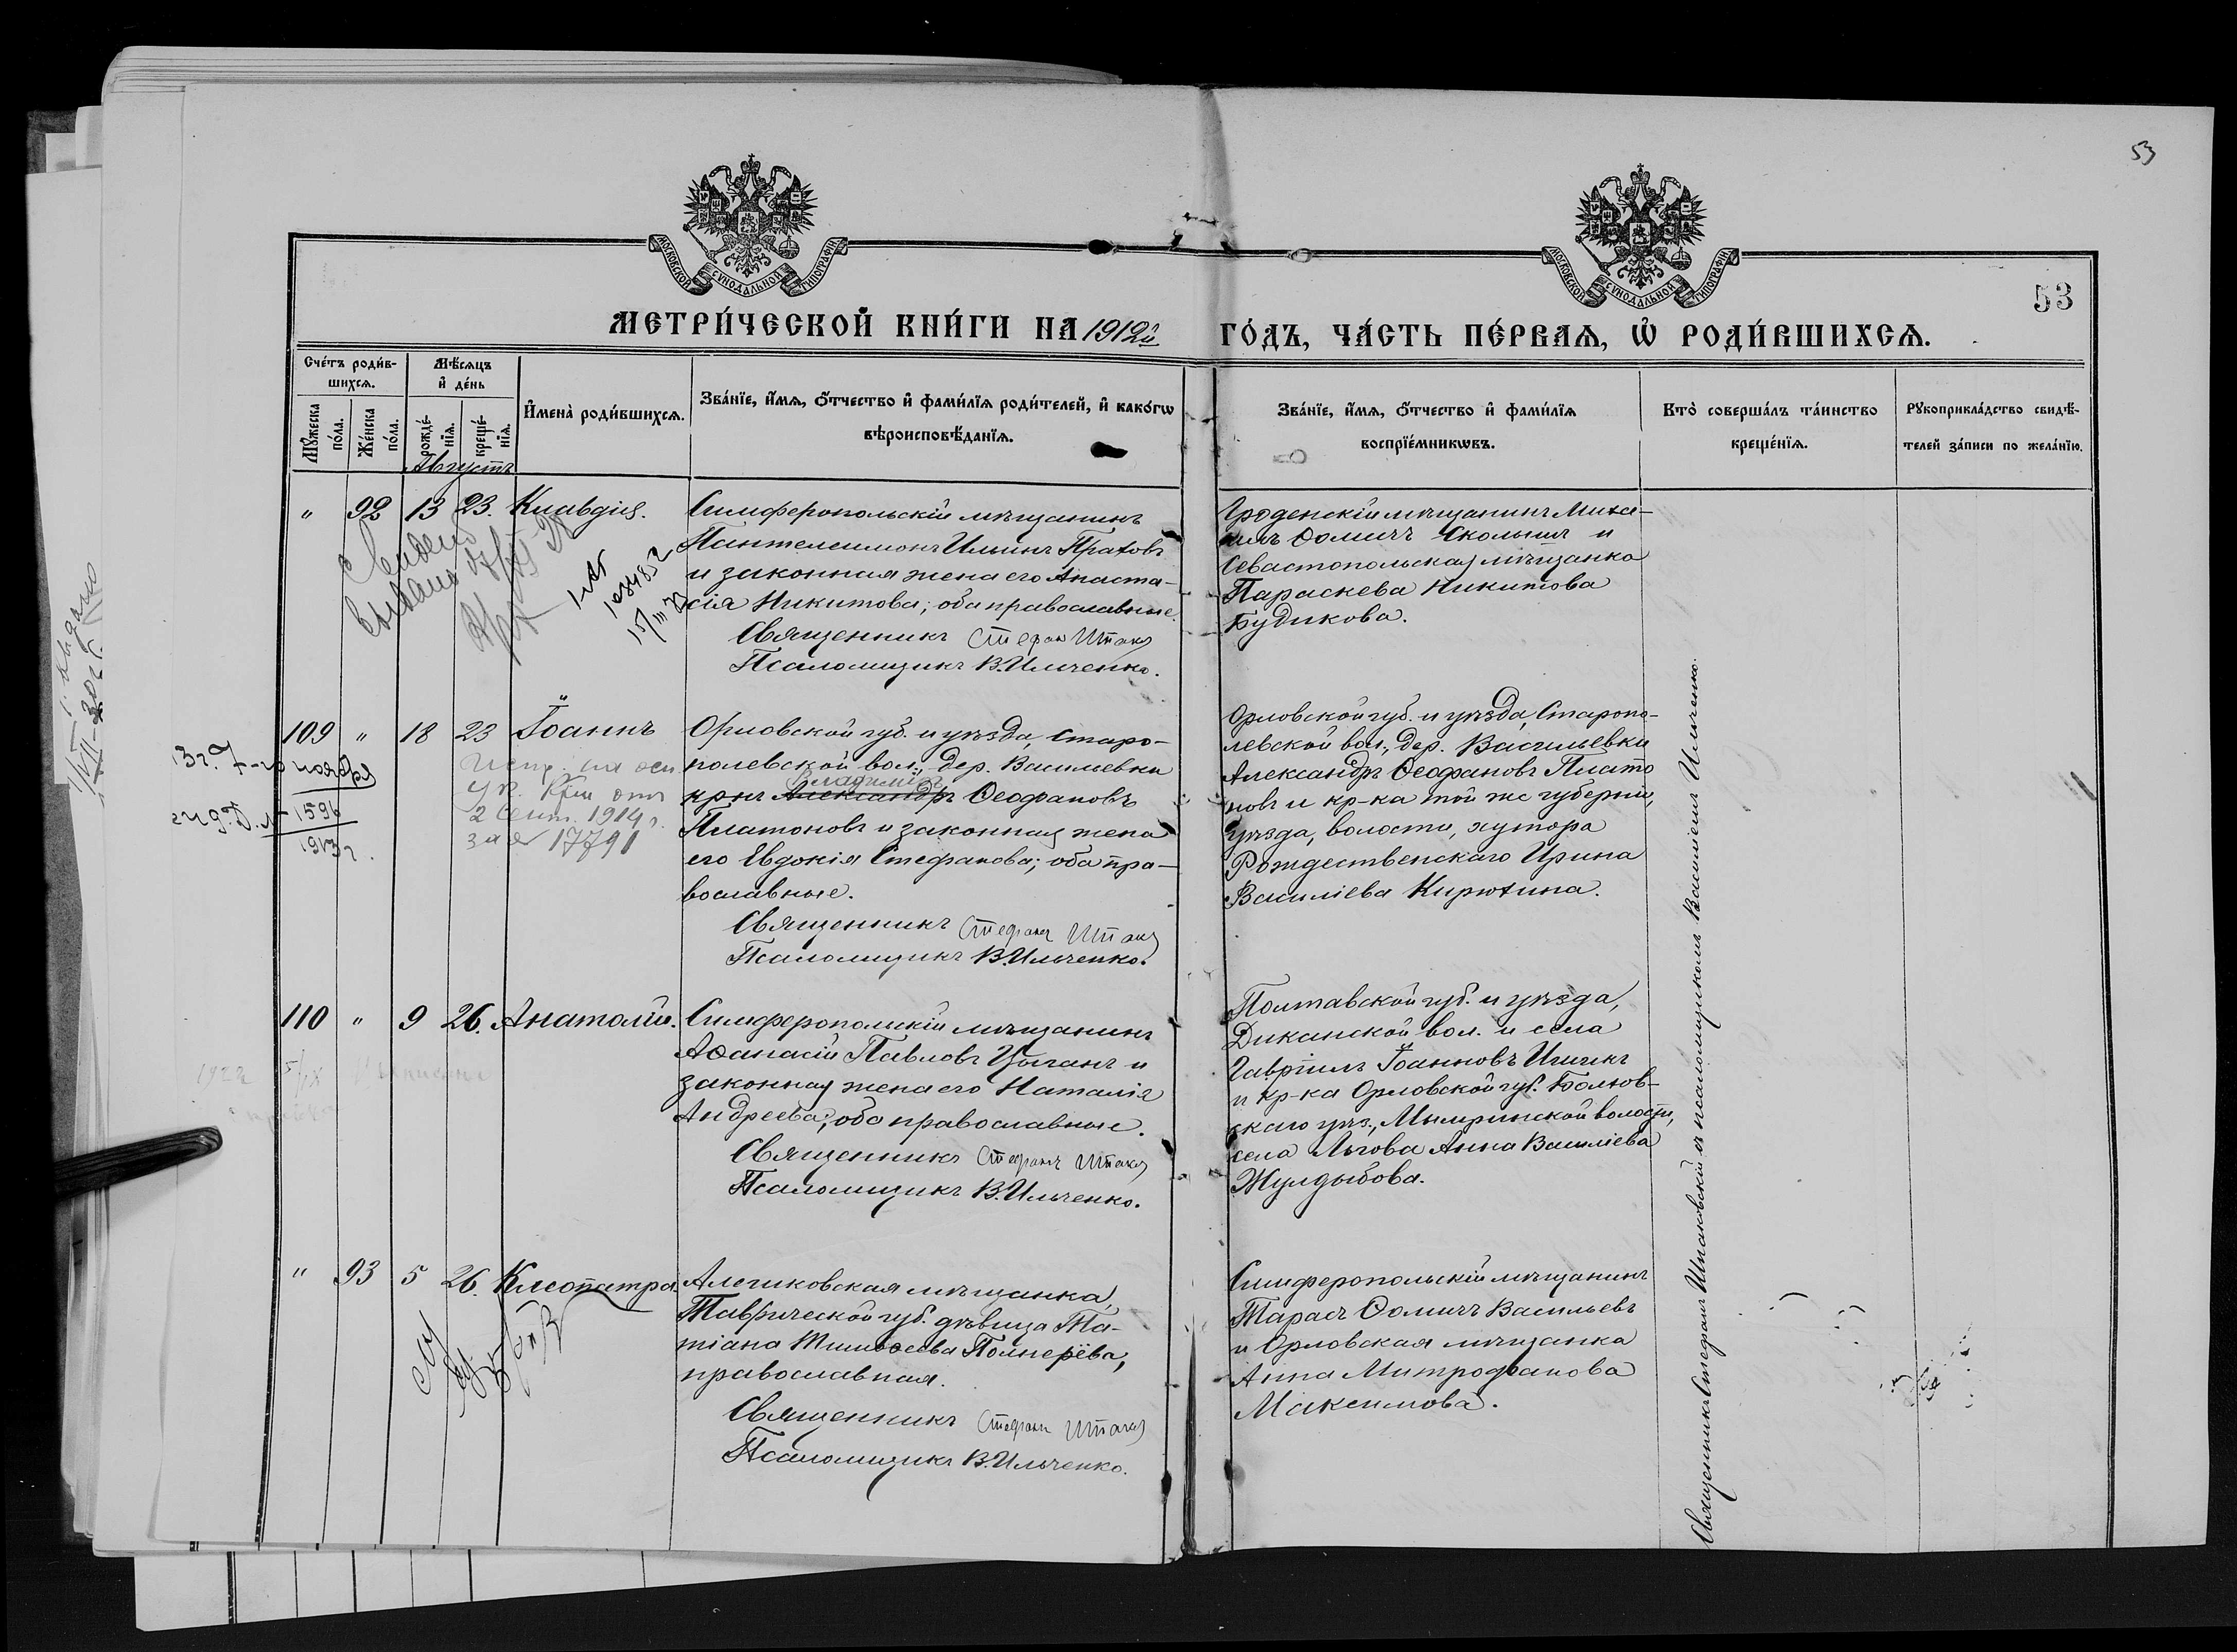 53
МОСКОВСКОЙ СѴНОДАЛЬНОЙ ТИПОГРАФІИ
МОСКОВСКОЙ СѴНОДАЛЬНОЙ ТИПОГРАФІИ
53
МЕТРИ́ЧЕСКОЙ КНИ́ГИ НА 1912й
ГО́ДЪ, ЧА́СТЬ ПЕ́РВАѦ, Ѡ҆ РОДИ́ВШИХСѦ.
Сче́тъ роди́в-
шихсѧ.
Мꙋ́жеска
по́ла.
Же́нска
по́ла.
Мѣ́сѧцъ
и҆ де́нь
рожде́-
нїѧ.
креще́-
нїѧ.
И҆мена̀ роди́вшихсѧ.
Зва́нїе, и҆́мѧ, ѻ҆́тчество и҆ фами́лїѧ роди́телей, и҆ како́гѡ
вѣроисповѣ́данїѧ.
Зва́нїе, и҆́мѧ, ѻ҆́тчество и҆ фами́лїѧ
воспрїе́мникѡвъ.
Кто̀ соверша́лъ та́инство
креще́нїѧ.
Рꙋкоприкла́дство свидѣ́-
телей за́писи по жела́нїю.
Августъ
" 92 13 23. Клавдія.
Симферопольскій мѣщанинъ
Пантелеимонъ Ильинъ
и законная жена его Анаста-
сія Никитова; оба православные.
Священникъ Стефан Шпак
Псаломщикъ В. Ильченко.
Гроденскій мѣщанинъ Миха-
илъ Ѳомичъ и
Севастопольская мѣщанка
Параскева Никитова
Будикова.
выдано
15/III
109 " 18 23 Іоаннъ
Орловской губ. и уѣзда, Старо-
полевской вол. дер. Васильевки
Владиміръ
крнъ Александръ Ѳеофановъ
Платоновъ и законная жена
его Евдокія Стефанова; оба пра-
вославные.
Священникъ Стефанъ Шпак
Псаломщикъ В. Ильченко.
Орловской губ. и уѣзда, Старопо-
левской вол., дер. Васильевки
Александръ Ѳеофановъ Плато
новъ и кр-ка той же губерніи,
уѣзда, волости, хутора
Рождественскаго Ирина
Василіева Кирютина.
13 г. 7-го ноября
1596
1913 г.
2 Сент. 1914 г.
за № 17791
110 " 9 26. Анатолій.
Симферопольскій мѣщанинъ
Аѳанасій Павловъ Цыганъ и
законная жена его Наталія
Андреева; оба православные.
Священникъ Стефанъ Шпак
Псаломщикъ В. Ильченко.
Полтавской губ. и уѣзда,
Диканской вол. и села
Гавріилъ Іоанновъ
и кр-ка Орловской губ. Болхов-
скаго уѣз., Мымринской волости,
села Льгова Анна Василіева
Жулдыбова.
" 93 5 26. Клеопатра.
Алешковская мѣщанка,
Таврической губ. дѣвица Та-
тіана Тимоѳеева
православная.
Священникъ Стефанъ Шпак
Псаломщикъ В. Ильченко.
Симферопольскій мѣщанинъ
Тарасъ Ѳомичъ Васильевъ
и Орловская мѣщанка
Анна Митрофанова
Максимова.
Священникъ Стефанъ Шпаковскій съ псаломщикомъ Василіемъ Ильченко.